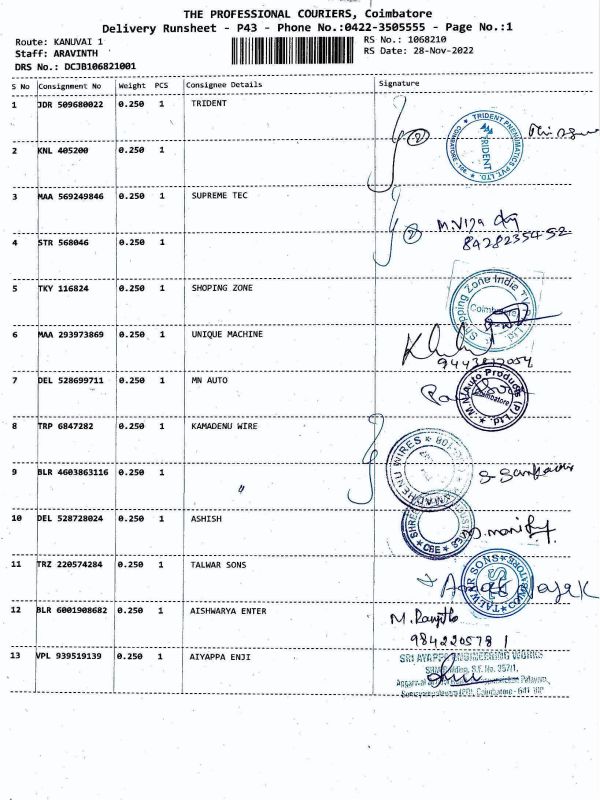 THE PROFESSIONAL COURIERS, Coimbatore
Delivery Runsheet - P43 - Phone No.:0422-3505555 - Page No.:1
Route: KANUVAI 1
Staff: ARAVINTH
DRS No.: DCJB106821001
RS No.: 1068210
RS Date: 28-Nov-2022
S No Consignment No Weight PCS Consignee Details Signature
1 JDR 509680022 0.250 1 TRIDENT
TRIDENT PNEUMATICS PVT. LTD.
TRIDENT
2
2 KNL 405200 0.250 1
3 MAA 569249846 0.250 1 SUPREME TEC
2
4 STR 568046 0.250 1
8428235452
5 TKY 116824 0.250 1 SHOPING ZONE
Shopping Zone India
Coimbatore
6 MAA 293973869 0.250 1 UNIQUE MACHINE
7 DEL 528699711 0.250 1 MN AUTO
M.N. Auto Products (P) Ltd.
Coimbatore
8 TRP 6847282 0.250 1 KAMADENU WIRE
KAMADHENU WIRES
9 BLR 4603863116 0.250 1 "
10 DEL 528728024 0.250 1 ASHISH
CBE
11 TRZ 220574284 0.250 1 TALWAR SONS
TALWAR SONS
12 BLR 6001908682 0.250 1 AISHWARYA ENTER
M. Ranjith
9842205781
13 VPL 939519139 0.250 1 AIYAPPA ENJI
SRI AYAPPA ENGINEERING WORKS